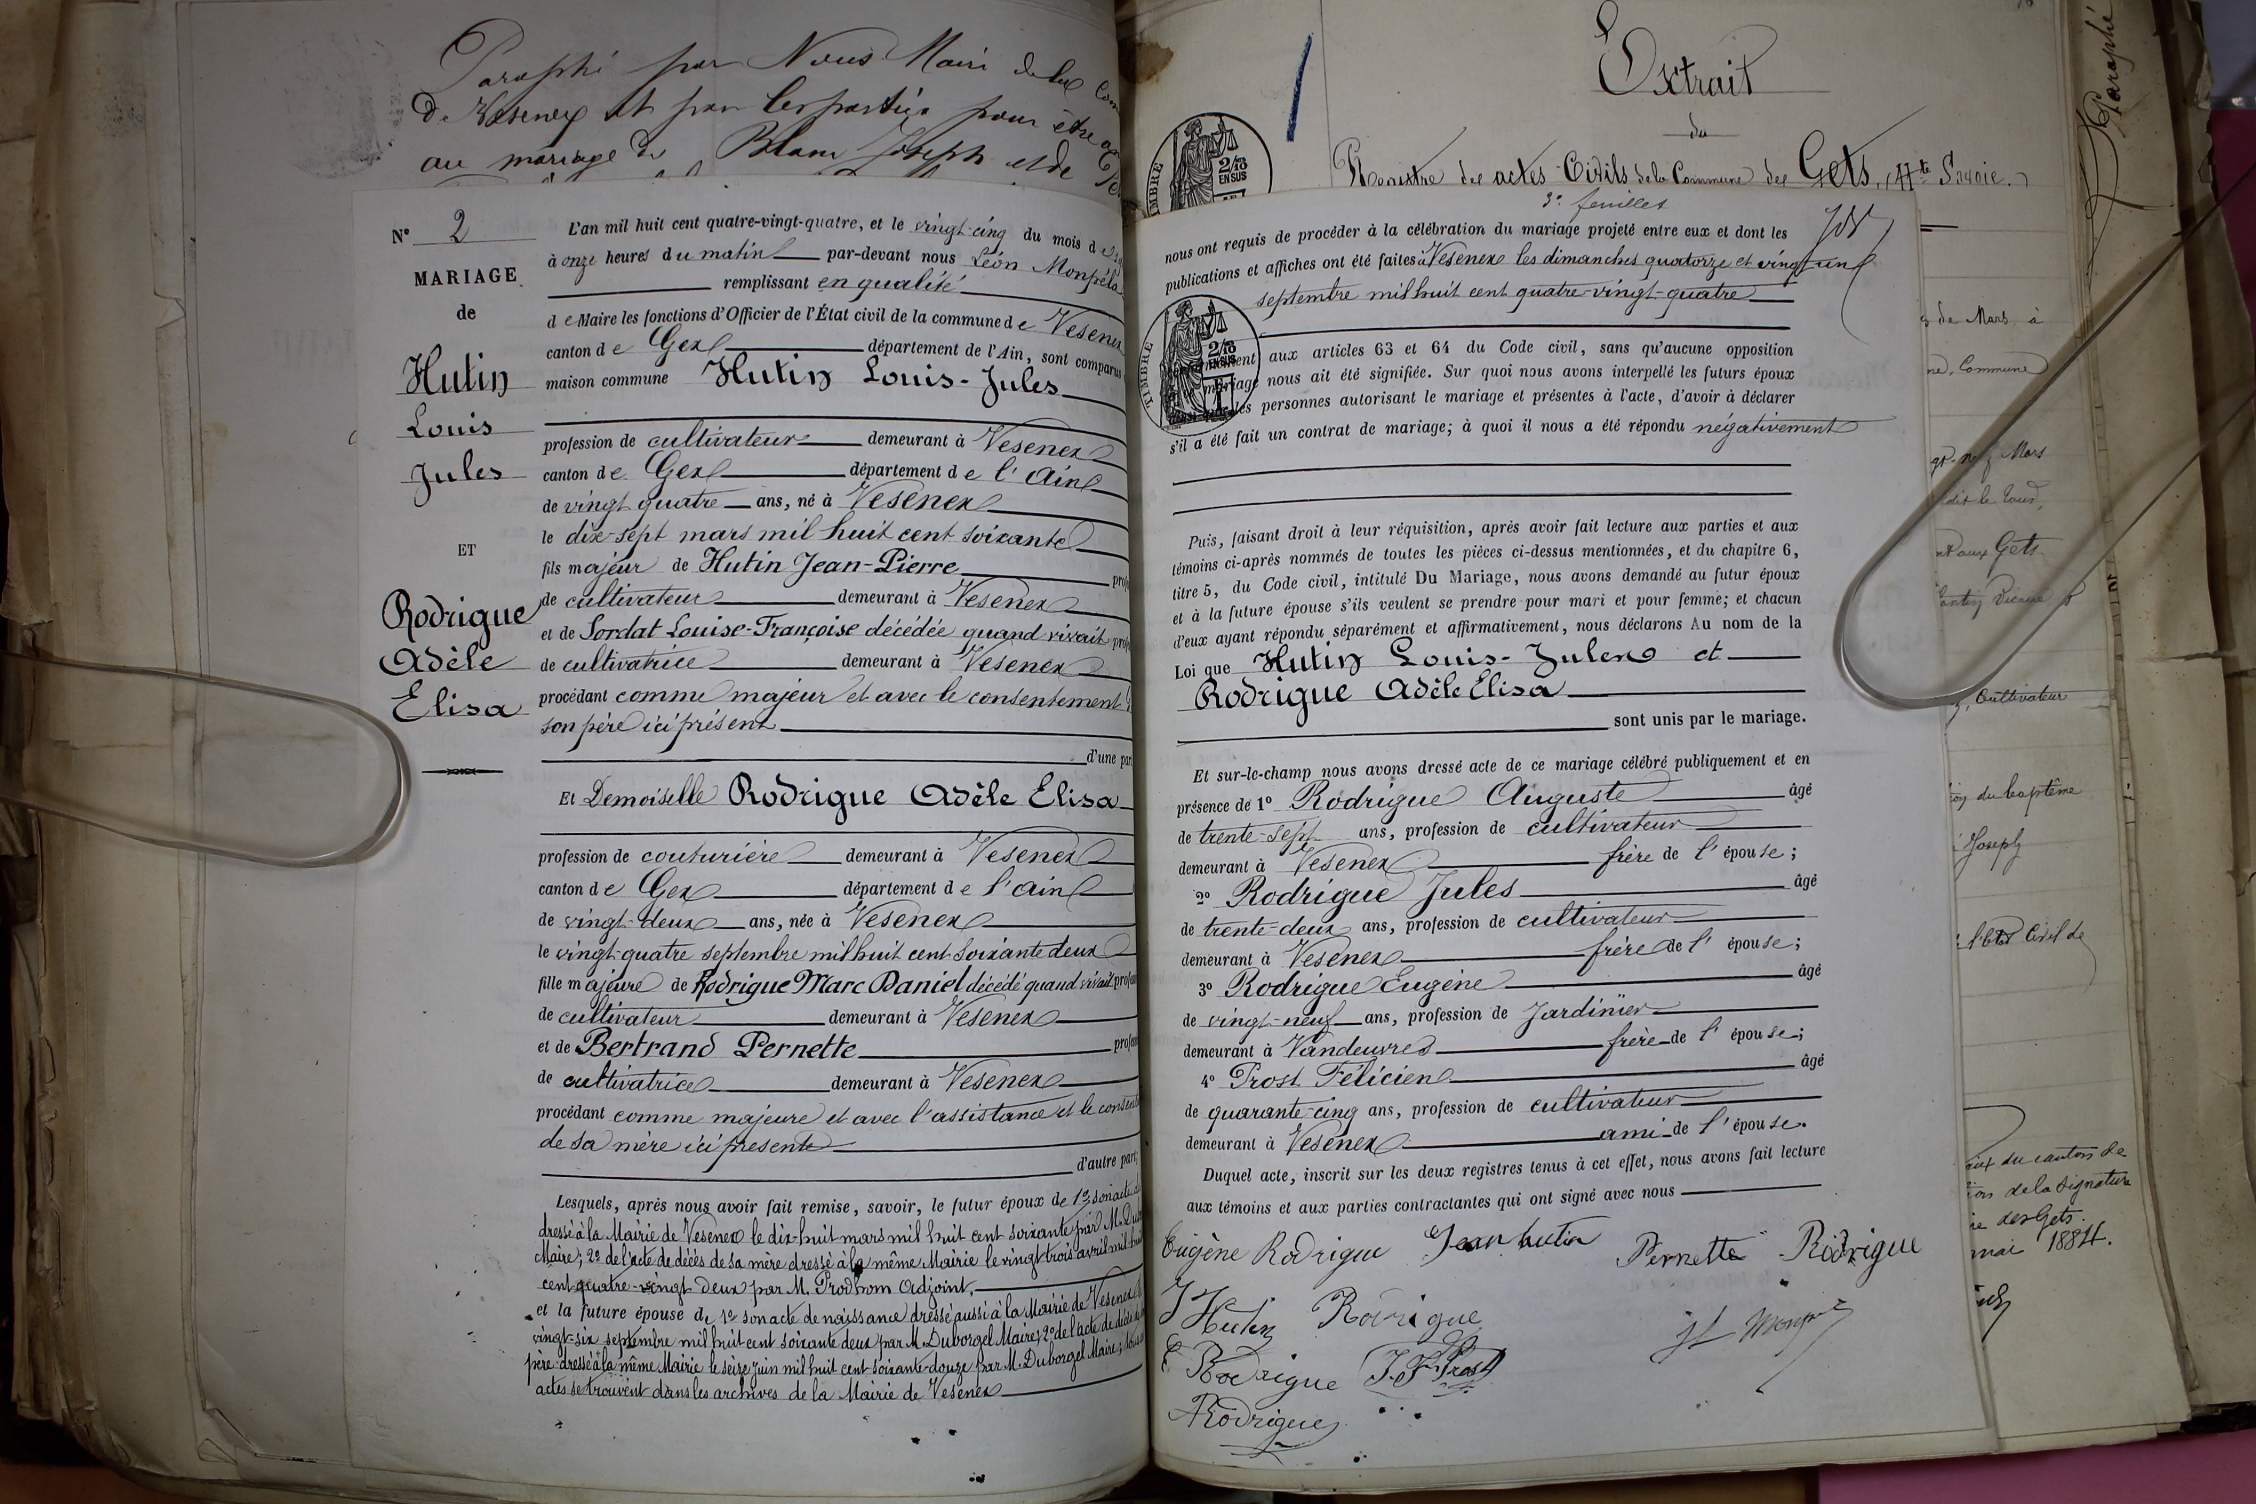 Paraphé par Nous Maire de la Com
de Vesenex et par les parties pour être
au mariage de Blanc Joseph et de
N° 2
MARIAGE
de
Hutin
Louis
Jules
ET
Rodrigue
Adèle
Elisa
L'an mil huit cent quatre-vingt-quatre, et le vingt-cinq du mois d
à onze heures du matin par-devant nous Léon Monpela
remplissant en qualité
de Maire les fonctions d'Officier de l'État civil de la commune de Vesenex
canton de Gex département de l'Ain, sont comparus
maison commune Hutin Louis-Jules
profession de cultivateur demeurant à Vesenex
canton de Gex département de l'Ain
de vingt quatre ans, né à Vesenex
le dix-sept mars mil huit cent soixante
fils majeur de Hutin Jean-Pierre prof
de cultivateur demeurant à Vesenex
et de Sordat Louise-Françoise décédée quand vivait prof
de cultivatrice demeurant à Vesenex
procédant comme majeur et avec le consentement
son père ici présent
d'une par
Et Demoiselle Rodrigue Adèle Elisa
profession de couturière demeurant à Vesenex
canton de Gex département de l'Ain
de vingt-deux ans, née à Vesenex
le vingt-quatre septembre mil huit cent soixante deux
fille majeure de Rodrigue Marc Daniel décédé quand vivait profes
de cultivateur demeurant à Vesenex
et de Bertrand Pernette profes
de cultivatrice demeurant à Vesenex
procédant comme majeure et avec l'assistance et le consent
de sa mère ici présente
d'autre part;
Lesquels, après nous avoir fait remise, savoir, le futur époux de 1° son acte
dressé à la Mairie de Vesenex le dix-huit mars mil huit cent soixante par M. Du
Maire; 2° de l'acte de décès de sa mère dressé à la même Mairie le vingt trois avril mil
cent quatre-vingt deux par M. Prodhom Adjoint.
et la future épouse de 1° son acte de naissance dressé aussi à la Mairie de Vesenex
vingt-six septembre mil huit cent soixante deux par M. Duborgel Maire; 2° de l'acte de décès
père dressé à la même Mairie le seize juin mil huit cent soixante-douze par M. Duborgel Maire;
actes se trouvent dans les archives de la Mairie de Vesenex
Extrait
du
Registre des actes Civils de la Commune des Gets, (Hte Savoie.)
TIMBRE
2/10
EN SUS
3e feuilles
nous ont requis de procéder à la célébration du mariage projeté entre eux et dont les
publications et affiches ont été faites à Vesenex les dimanches quatorze et vingt-un
septembre mil huit cent quatre-vingt-quatre
TIMBRE
2/10
EN SUS
aux articles 63 et 64 du Code civil, sans qu'aucune opposition
mariage nous ait été signifiée. Sur quoi nous avons interpellé les futurs époux
les personnes autorisant le mariage et présentes à l'acte, d'avoir à déclarer
s'il a été fait un contrat de mariage; à quoi il nous a été répondu négativement
Puis, faisant droit à leur réquisition, après avoir fait lecture aux parties et aux
témoins ci-après nommés de toutes les pièces ci-dessus mentionnées, et du chapitre 6,
titre 5, du Code civil, intitulé Du Mariage, nous avons demandé au futur époux
et à la future épouse s'ils veulent se prendre pour mari et pour femme; et chacun
d'eux ayant répondu séparément et affirmativement, nous déclarons Au nom de la
Loi que Hutin Louis-Jules et
Rodrigue Adèle Elisa
sont unis par le mariage.
Et sur-le-champ nous avons dressé acte de ce mariage célébré publiquement et en
présence de 1° Rodrigue Auguste âgé
de trente-sept ans, profession de cultivateur
demeurant à Vesenex frère de l'épouse;
2° Rodrigue Jules âgé
de trente-deux ans, profession de cultivateur
demeurant à Vesenex frère de l'épouse;
3° Rodrigue Eugène âgé
de vingt-neuf ans, profession de Jardinier
demeurant à Vandeuvres frère de l'épouse;
4° Prost Félicien âgé
de quarante-cinq ans, profession de cultivateur
demeurant à Vesenex ami de l'épouse.
Duquel acte, inscrit sur les deux registres tenus à cet effet, nous avons fait lecture
aux témoins et aux parties contractantes qui ont signé avec nous
Eugène Rodrigue Jean hutin Pernette Rodrigue
J Hutin Rodrigue
E Rodrigue J. F. Prost
Rodrigue
Paraphé
de Mars à
Commune
Mars
aux Gets
Cultivateur
du baptême
Joseph
l'Etat Civil de
du canton de
de la Signature
des Gets.
mai 1884.